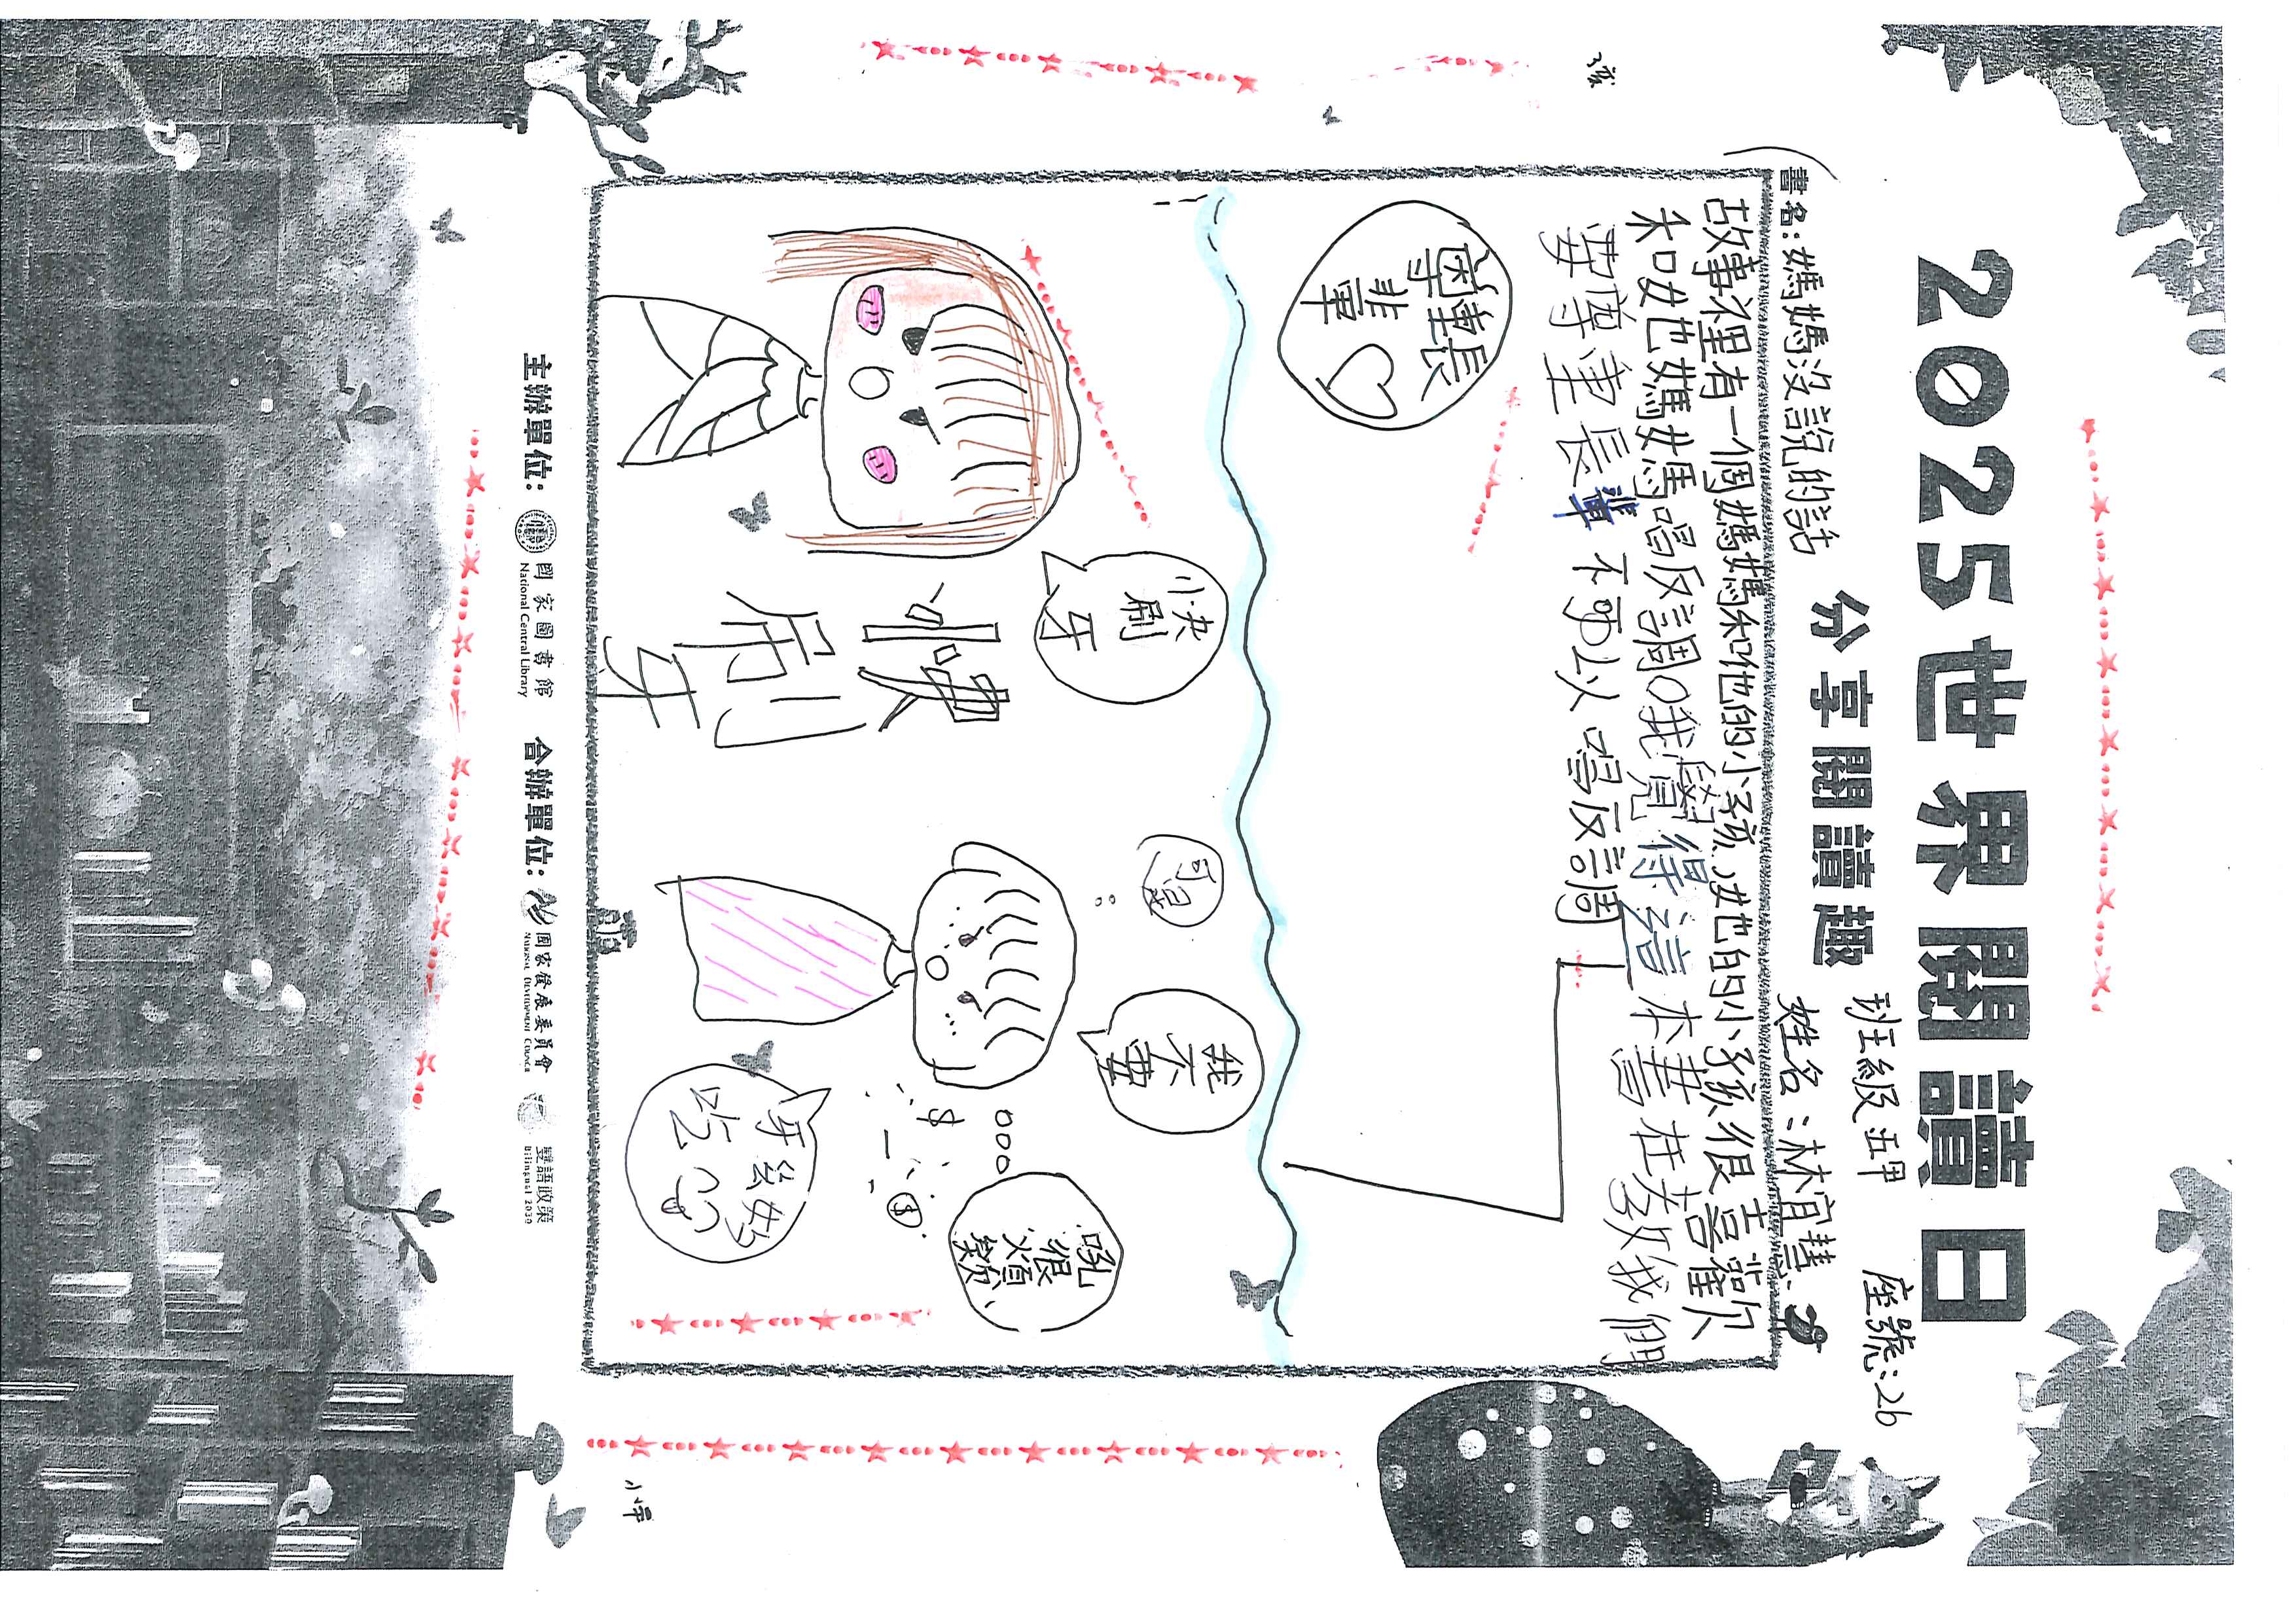 2025世界閱讀日
分享閱讀趣
班級五甲 座號:26
姓名:林宜慧
書名:媽媽沒說的話
故事裡有一個媽媽和他的小孩,她的小孩很喜歡
和她媽媽唱反調。我覺得這本書在教我們
要尊重長輩不可以唱反調
尊重長
輩
快
刷
牙
快
刷
牙
可惡
我
不要
吼
很
煩
欸
牙給妳
吃
主辦單位: 國家圖書館 合辦單位: 國家發展委員會 雙語政策
National Central Library National Development Council Bilingual 2030